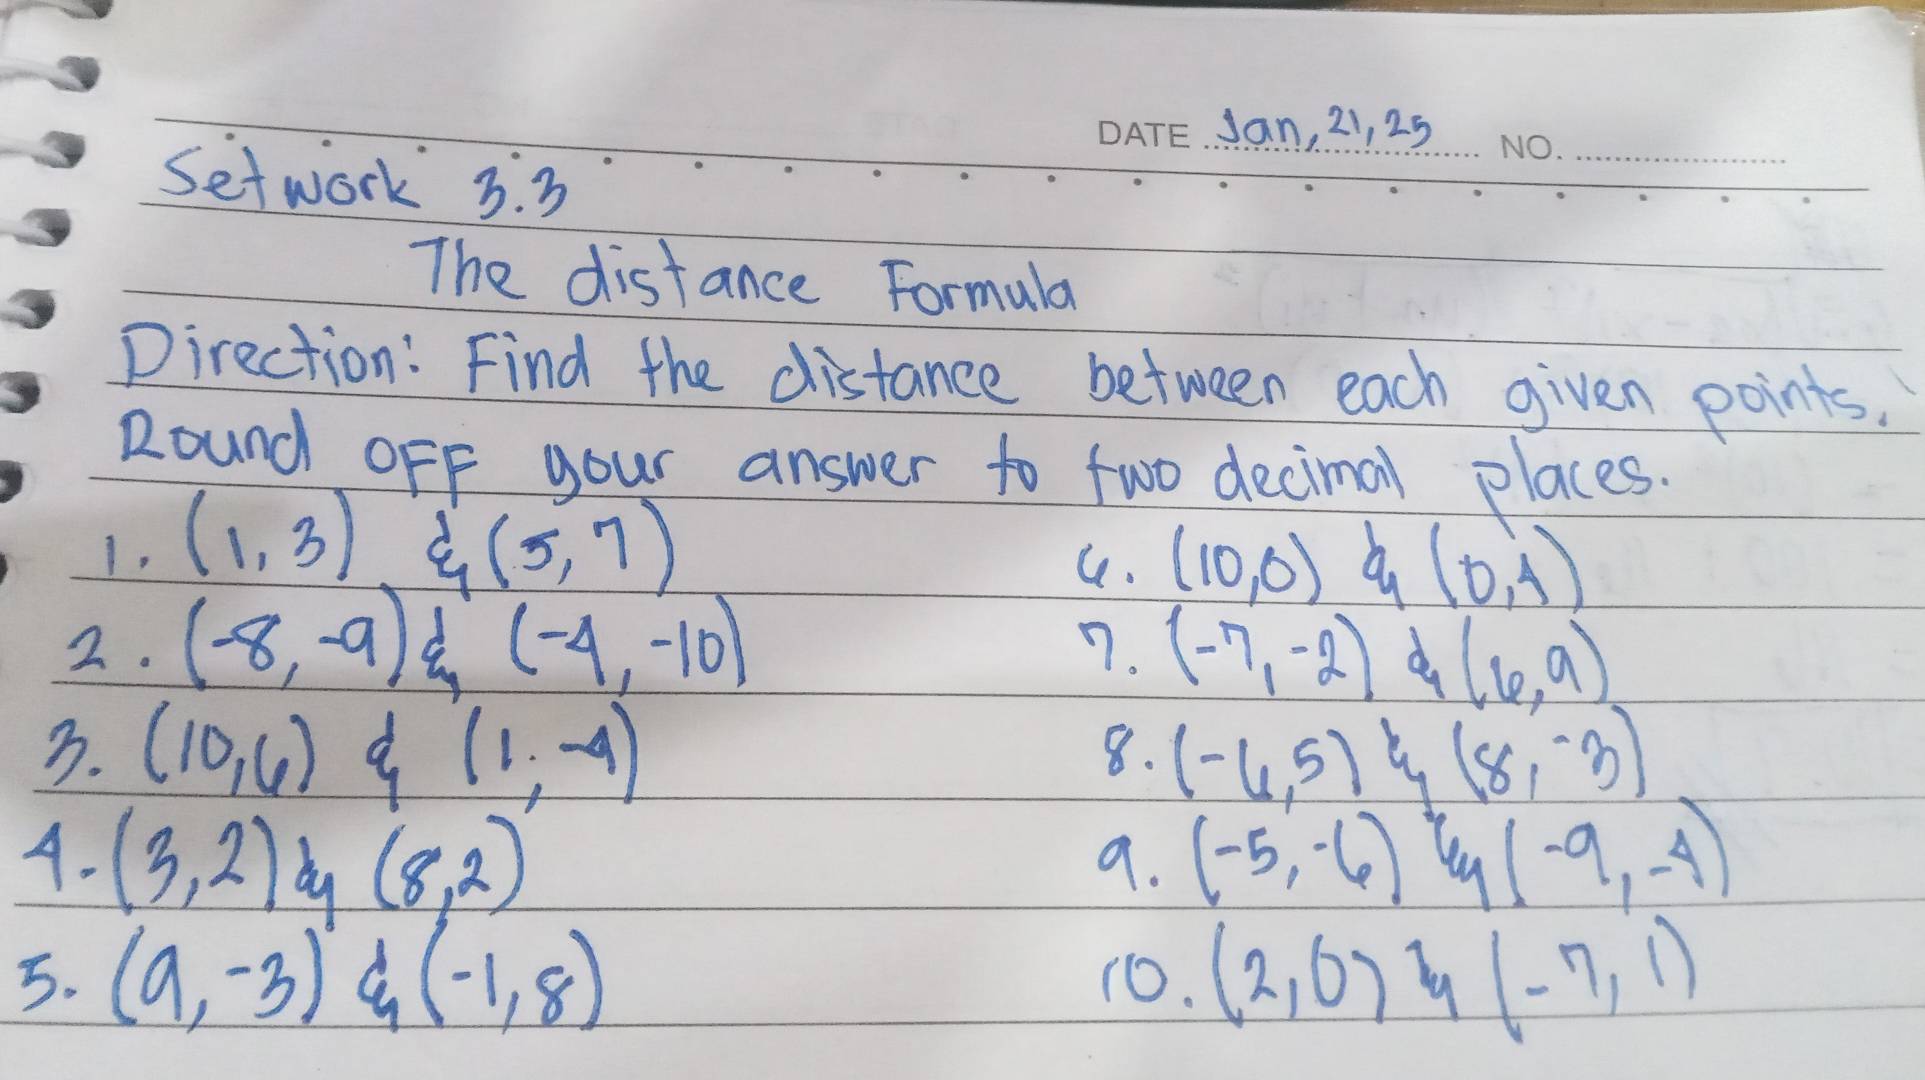 DATE Jan, 21, 25 NO.
Setwork 3.3
The distance Formula
Direction: Find the distance between each given points.
Round OFF your answer to two decimal places.
1. (1, 3) & (5, 7)
2. (-8, -9) & (-4, -10)
3. (10,6) & (1, -4)
4. (3,2) & (8,2)
5. (9, -3) & (-1, 8)
6. (10,0) & (0,4)
7. (-7, -2) & (6,9)
8. (-6,5) & (8, -3)
9. (-5, -6) & (-9, -4)
10. (2,0) & (-7, 1)